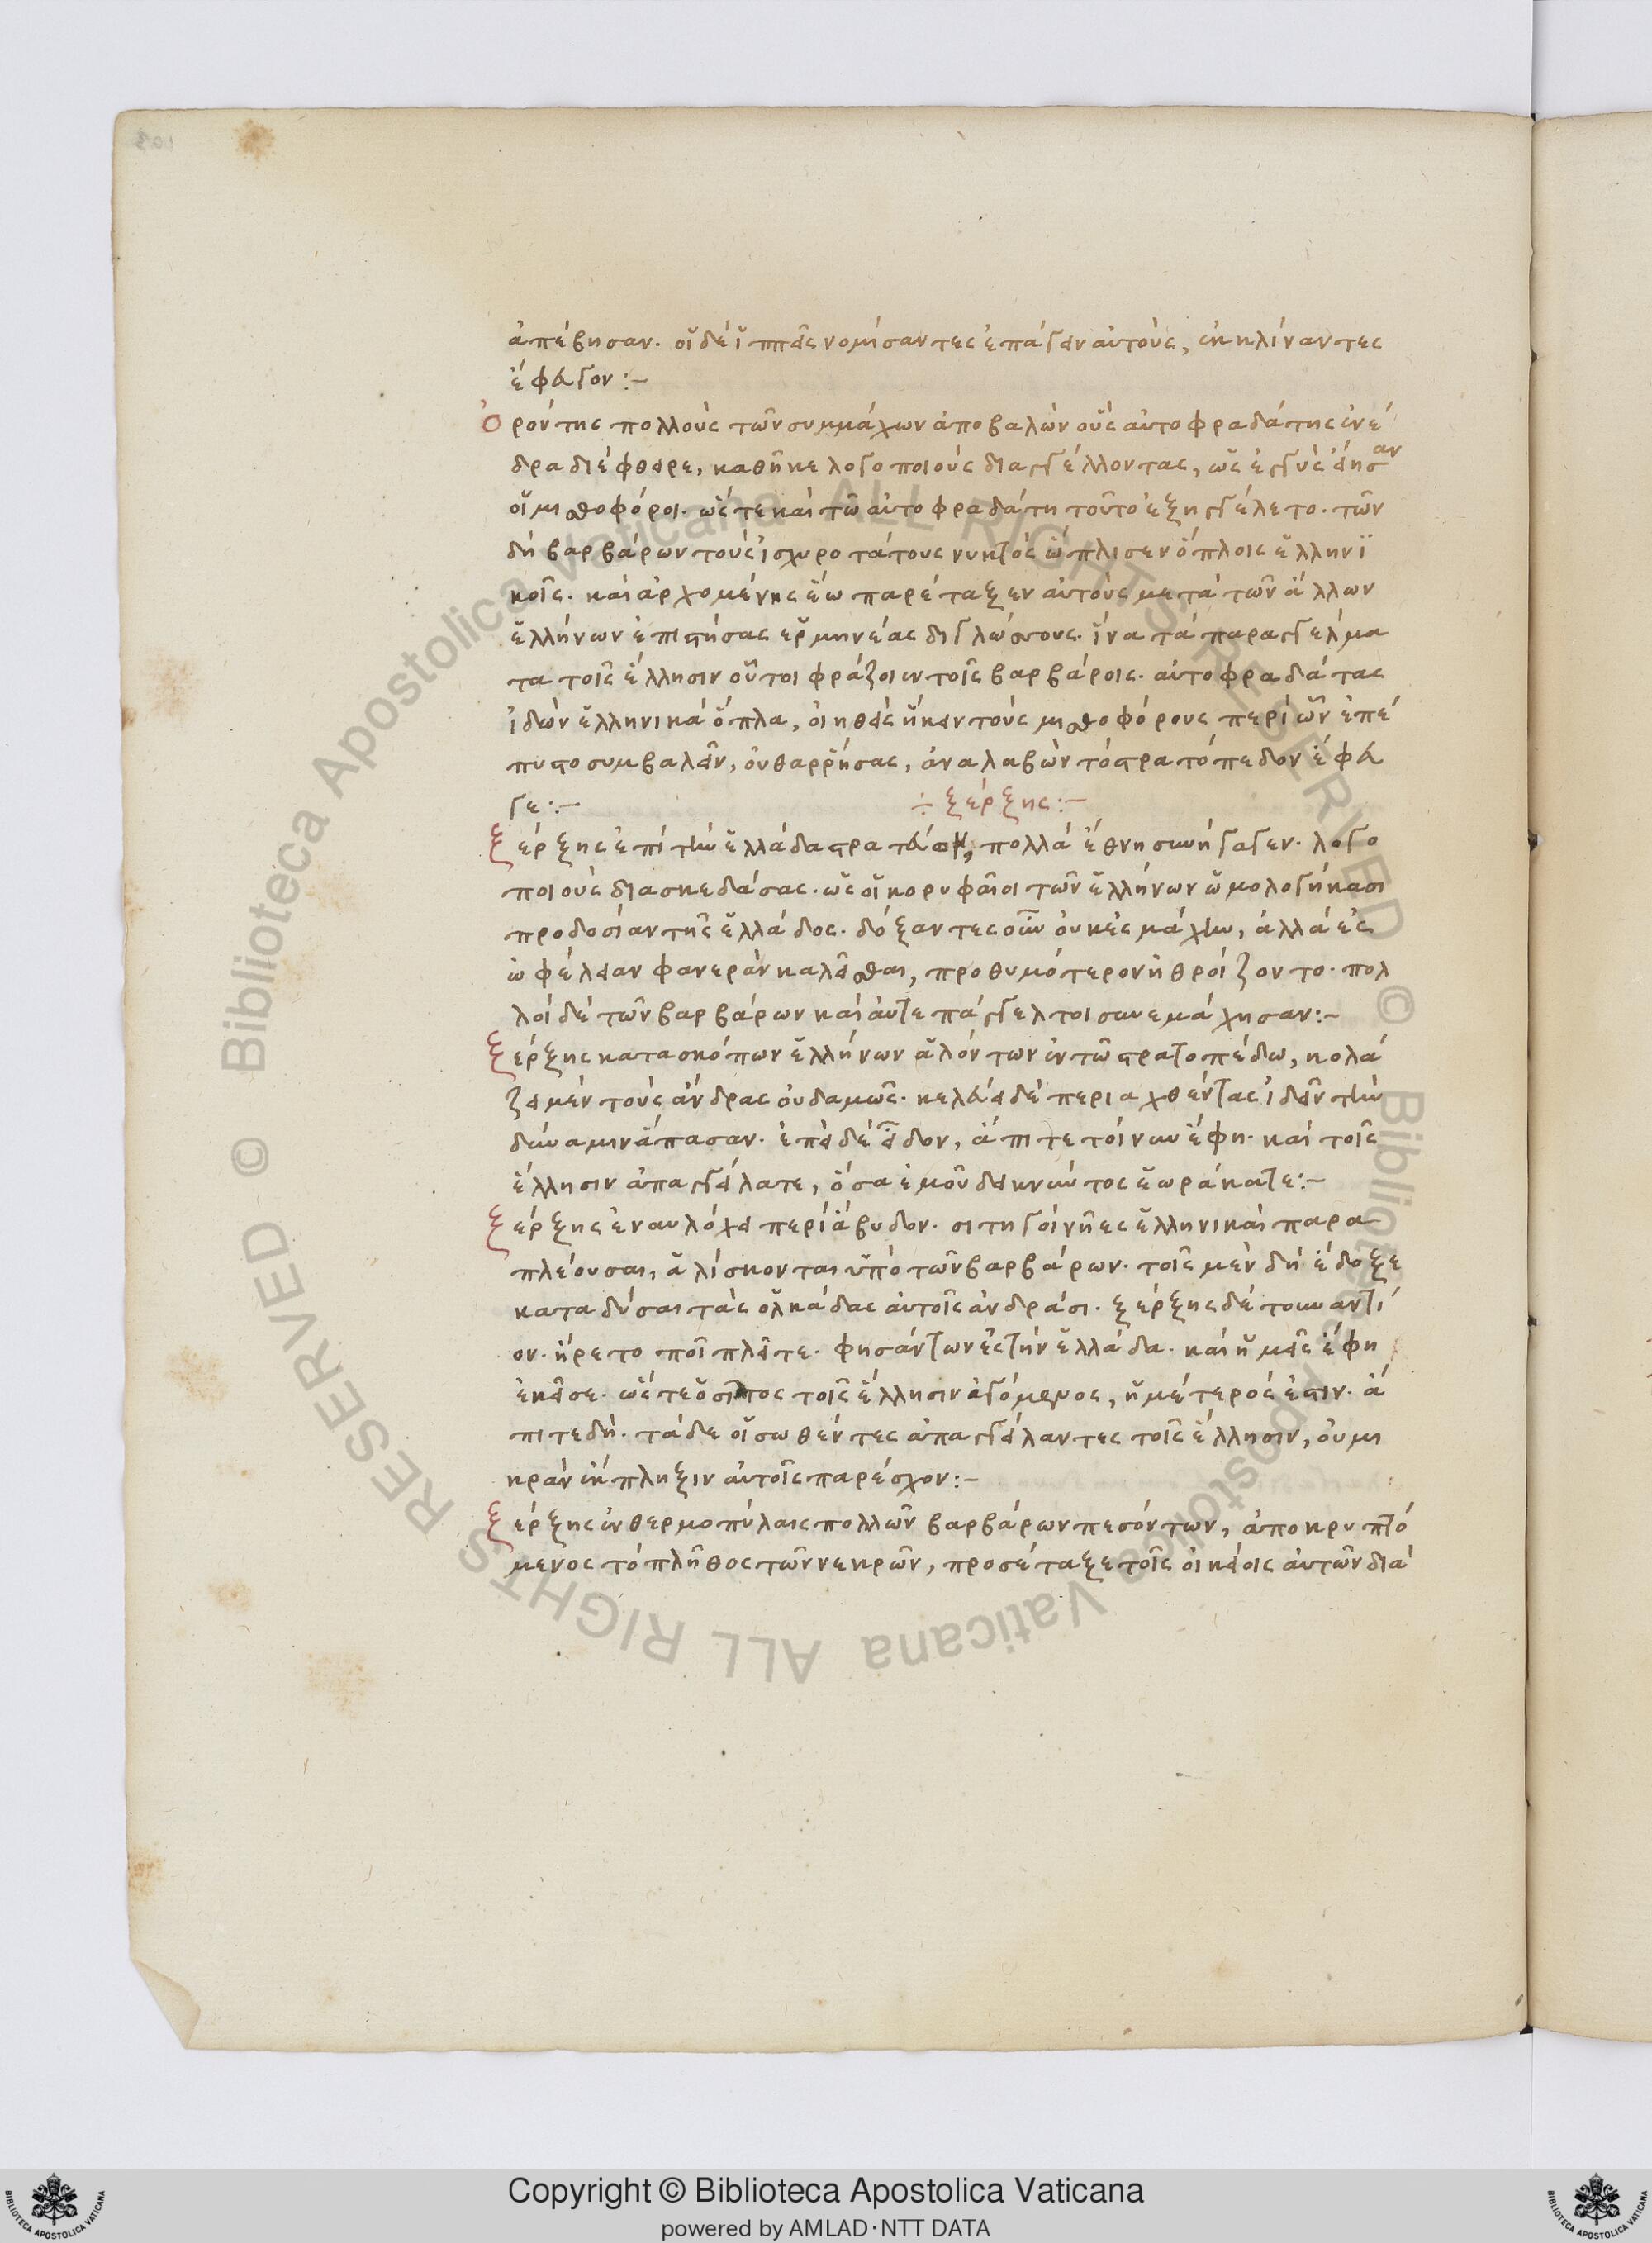 ἀπέβησαν. οἱ δὲ ἱππεῖς νομίσαντες ἐπάγειν αὐτοὺς, ἐκκλίναντες
ἔφευγον:-
Ὀρόντης πολλοὺς τῶν συμμάχων ἀποβαλὼν οὓς αὐτοφραδάτης ἐνέ
δρα διέφθειρε, καθῆκε λογοποιοὺς διαγγέλλοντας, ὡς ἐγγὺς εἴησαν
οἱ μισθοφόροι. ὥστε καὶ τῶ αὐτοφραδάτη τοῦτο ἐξηγγέλετο. τῶν
δὴ βαρβάρων τοὺς ἰσχυροτάτους νυκτὸς ὥπλισεν ὅπλοις ἑλληνϊ
κοῖς. καὶ ἀρχομένης ἕω παρέταξεν αὐτοὺς μετὰ τῶν ἄλλων
ἑλλήνων ἐπιστήσας ἑρμηνέας διγλώσσους. ἵνα τὰ παραγγέλμα
τα τοῖς ἕλλησιν οὗτοι φράζοιεν τοῖς βαρβάροις. αὐτοφραδάτας
ἰδὼν ἑλληνικὰ ὅπλα, οἰηθεὶς ἥκειν τοὺς μισθοφόρους περὶ ὧν ἐπέ
πυστο συμβαλεῖν, οὐ θαρρήσας, ἀναλαβὼν τὸ στρατόπεδον ἔφευ
γε:- ÷ ξέρξης:-
Ξέρξης ἐπὶ τὴν ἑλλάδα στρατεύσας, πολλὰ ἔθνη συνήγαγεν. λογο
ποιοὺς διασκεδάσας. ὡς οἱ κορυφαῖοι τῶν ἑλλήνων ὡμολογήκασι
προδοσίαν τῆς ἑλλάδος. δόξαντες οὖν οὐκ εἰς μάχην, ἀλλὰ εἰς
ὠφέλειαν φανερὰν καλεῖσθαι, προθυμότερον ἠθροίζοντο. πολ
λοὶ δὲ τῶν βαρβάρων καὶ αὐτεπάγγελτοι συνεμάχησαν:-
Ξέρξης κατασκόπων ἑλλήνων ἁλόντων ἐν τῶ στρατοπέδω, κολά
ζει μὲν τοὺς ἄνδρας οὐδαμῶς. κελεύει δὲ περιαχθέντας ἰδεῖν τὴν
δύναμιν ἅπασαν. ἐπεὶ δὲ εἶδον, ἄπιτε τοίνυν ἔφη. καὶ τοῖς
ἕλλησιν ἀπαγγείλατε, ὅσα ἐμοῦ δεικνύντος ἑωράκατε:-
Ξέρξης ἐναυλόχει περὶ ἄβυδον. σιτηγοὶ νῆες ἑλληνικαὶ παρα
πλέουσαι, ἁλίσκονται ὑπὸ τῶν βαρβάρων. τοῖς μὲν δὴ ἔδοξε
καταδύσαι τὰς ὁλκάδας αὐτοῖς ἀνδράσι. ξέρξης δὲ τουναντί
ον. ἤρετο ποῖ πλεῖτε. φησάντων εἰς τὴν ἑλλάδα. καὶ ἡμεῖς ἔφη
ἐκεῖσε. ὥστε ὁ σῖτος τοῖς ἕλλησιν ἀγόμενος, ἡμέτερός ἐστιν. ἄ
πιτε δή. τάδε οἱ σωθέντες ἀπαγγείλαντες τοῖς ἕλλησιν, οὐ μι
κρὰν ἔκπληξιν αὐτοῖς παρέσχον:-
Ξέρξης ἐν θερμοπύλαις πολλῶν βαρβάρων πεσόντων, ἀποκρυπτό
μενος τὸ πλῆθος τῶν νεκρῶν, προσέταξε τοῖς οἰκείοις αὐτῶν διὰ
© Biblioteca Apostolica Vaticana ALL RIGHTS RESERVED © Biblioteca Apostolica Vaticana ALL RIGHTS RESERVED
Copyright © Biblioteca Apostolica Vaticana
powered by AMLAD·NTT DATA
BIBLIOTECA APOSTOLICA VATICANA
BIBLIOTECA APOSTOLICA VATICANA